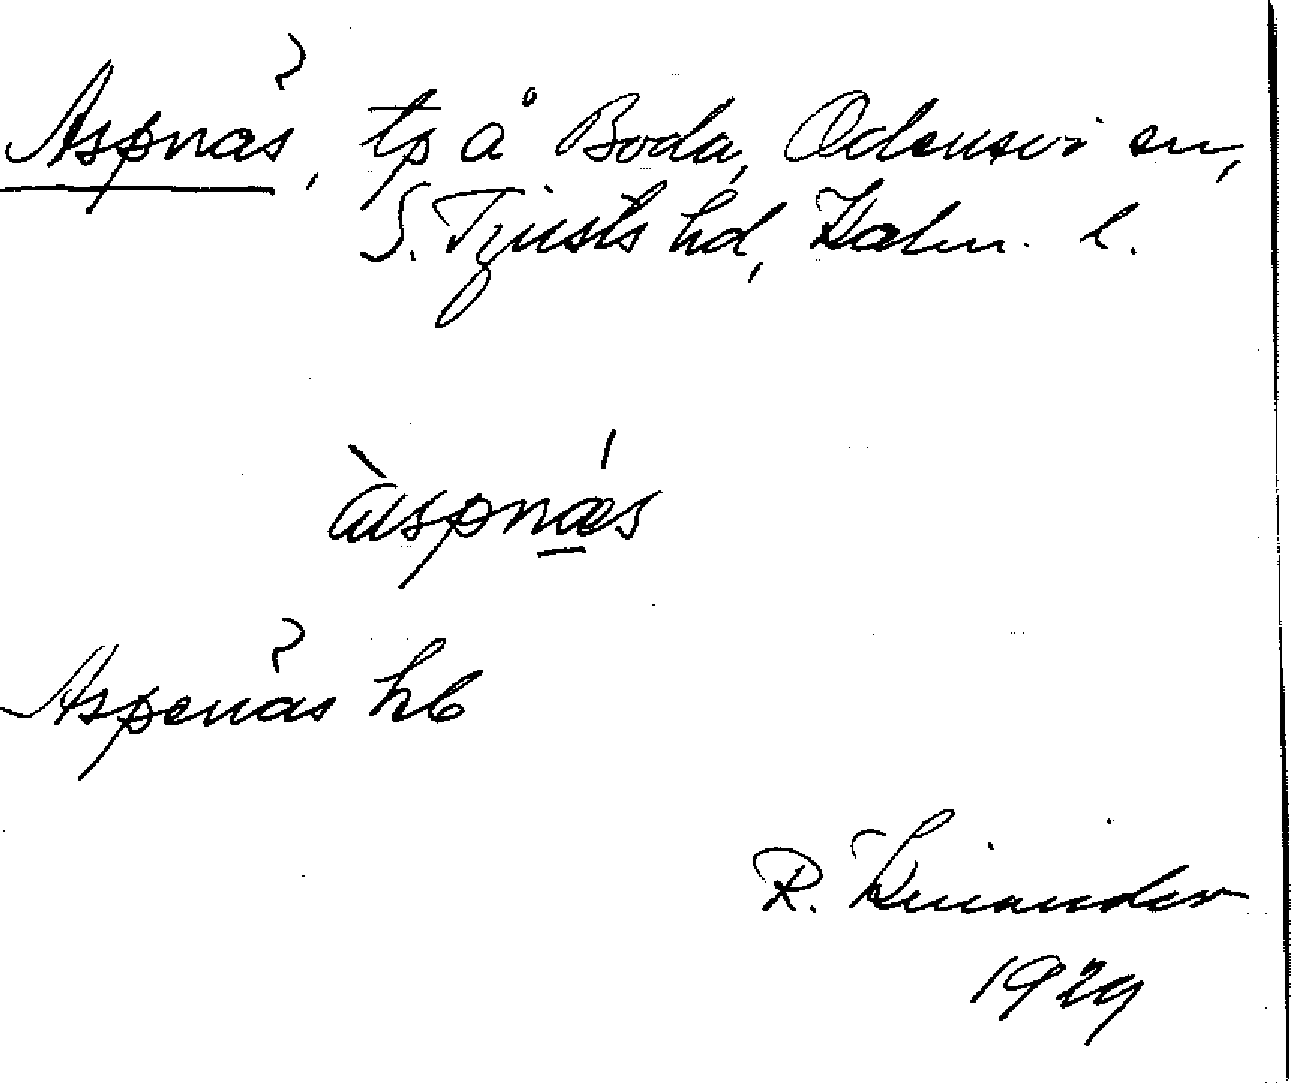 Aspnäs, tp å Boda, Odensvi sn,
S. Tjusts hd, Kalm. l.
àspnǽs
Aspenäs hb
R. Kinander
1929